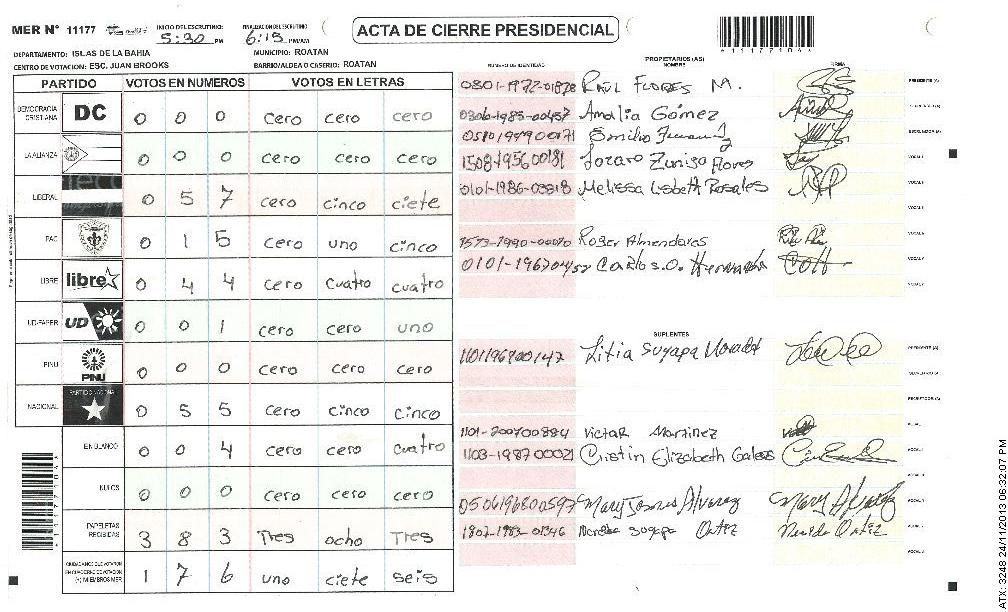 MER Nº 11177
INICIO DEL ESCRUTINIO
5:30 PM
FINALIZACIÓN DEL ESCRUTINIO
6:15 PM/AM
ACTA DE CIERRE PRESIDENCIAL
DEPARTAMENTO: ISLAS DE LA BAHIA
MUNICIPIO: ROATAN
CENTRO DE VOTACION: ESC. JUAN BROOKS
BARRIO/ALDEA O CASERIO: ROATAN
PARTIDO VOTOS EN NUMEROS VOTOS EN LETRAS
DEMOCRACIA CRISTIANA DC 0 0 0 cero cero cero
LA ALIANZA 0 0 0 cero cero cero
LIBERAL 0 5 7 cero cinco ciete
PAC 0 1 5 cero uno cinco
LIBRE libre 0 4 4 cero cuatro cuatro
UD-FAPER UD 0 0 1 cero cero uno
PINU PINU 0 0 0 cero cero cero
NACIONAL 0 5 5 cero cinco cinco
EN BLANCO 0 0 4 cero cero cuatro
NULOS 0 0 0 cero cero cero
PAPELETAS RECIBIDAS 3 8 3 Tres ocho Tres
CIUDADANOS QUE VOTARON EN CUADERNO DE VOTACION (+) MIEMBROS MER 1 7 6 uno ciete seis
NUMERO DE IDENTIDAD
PROPIETARIOS (AS)
NOMBRE
FIRMA
RAÚL FLORES M. PRESIDENTE (A)
0306-1985-00457 Amalia Gómez
Emilio
1508-1956 00181 Zuniga Flores
0101-1986-03818 Melissa Lisbeth Rosales
Roger Almendares
Carlos O. Hernandez
SUPLENTES
Suyapa PRESIDENTE (A)
1101-200700884 Victor Martinez
1103-1987 00021 Cristin Elizabeth
0506196800597 Mary Alvarez
1807-1983-01346 Suyapa Ortez
ATX: 3248 24/11/2013 06:32:07 PM